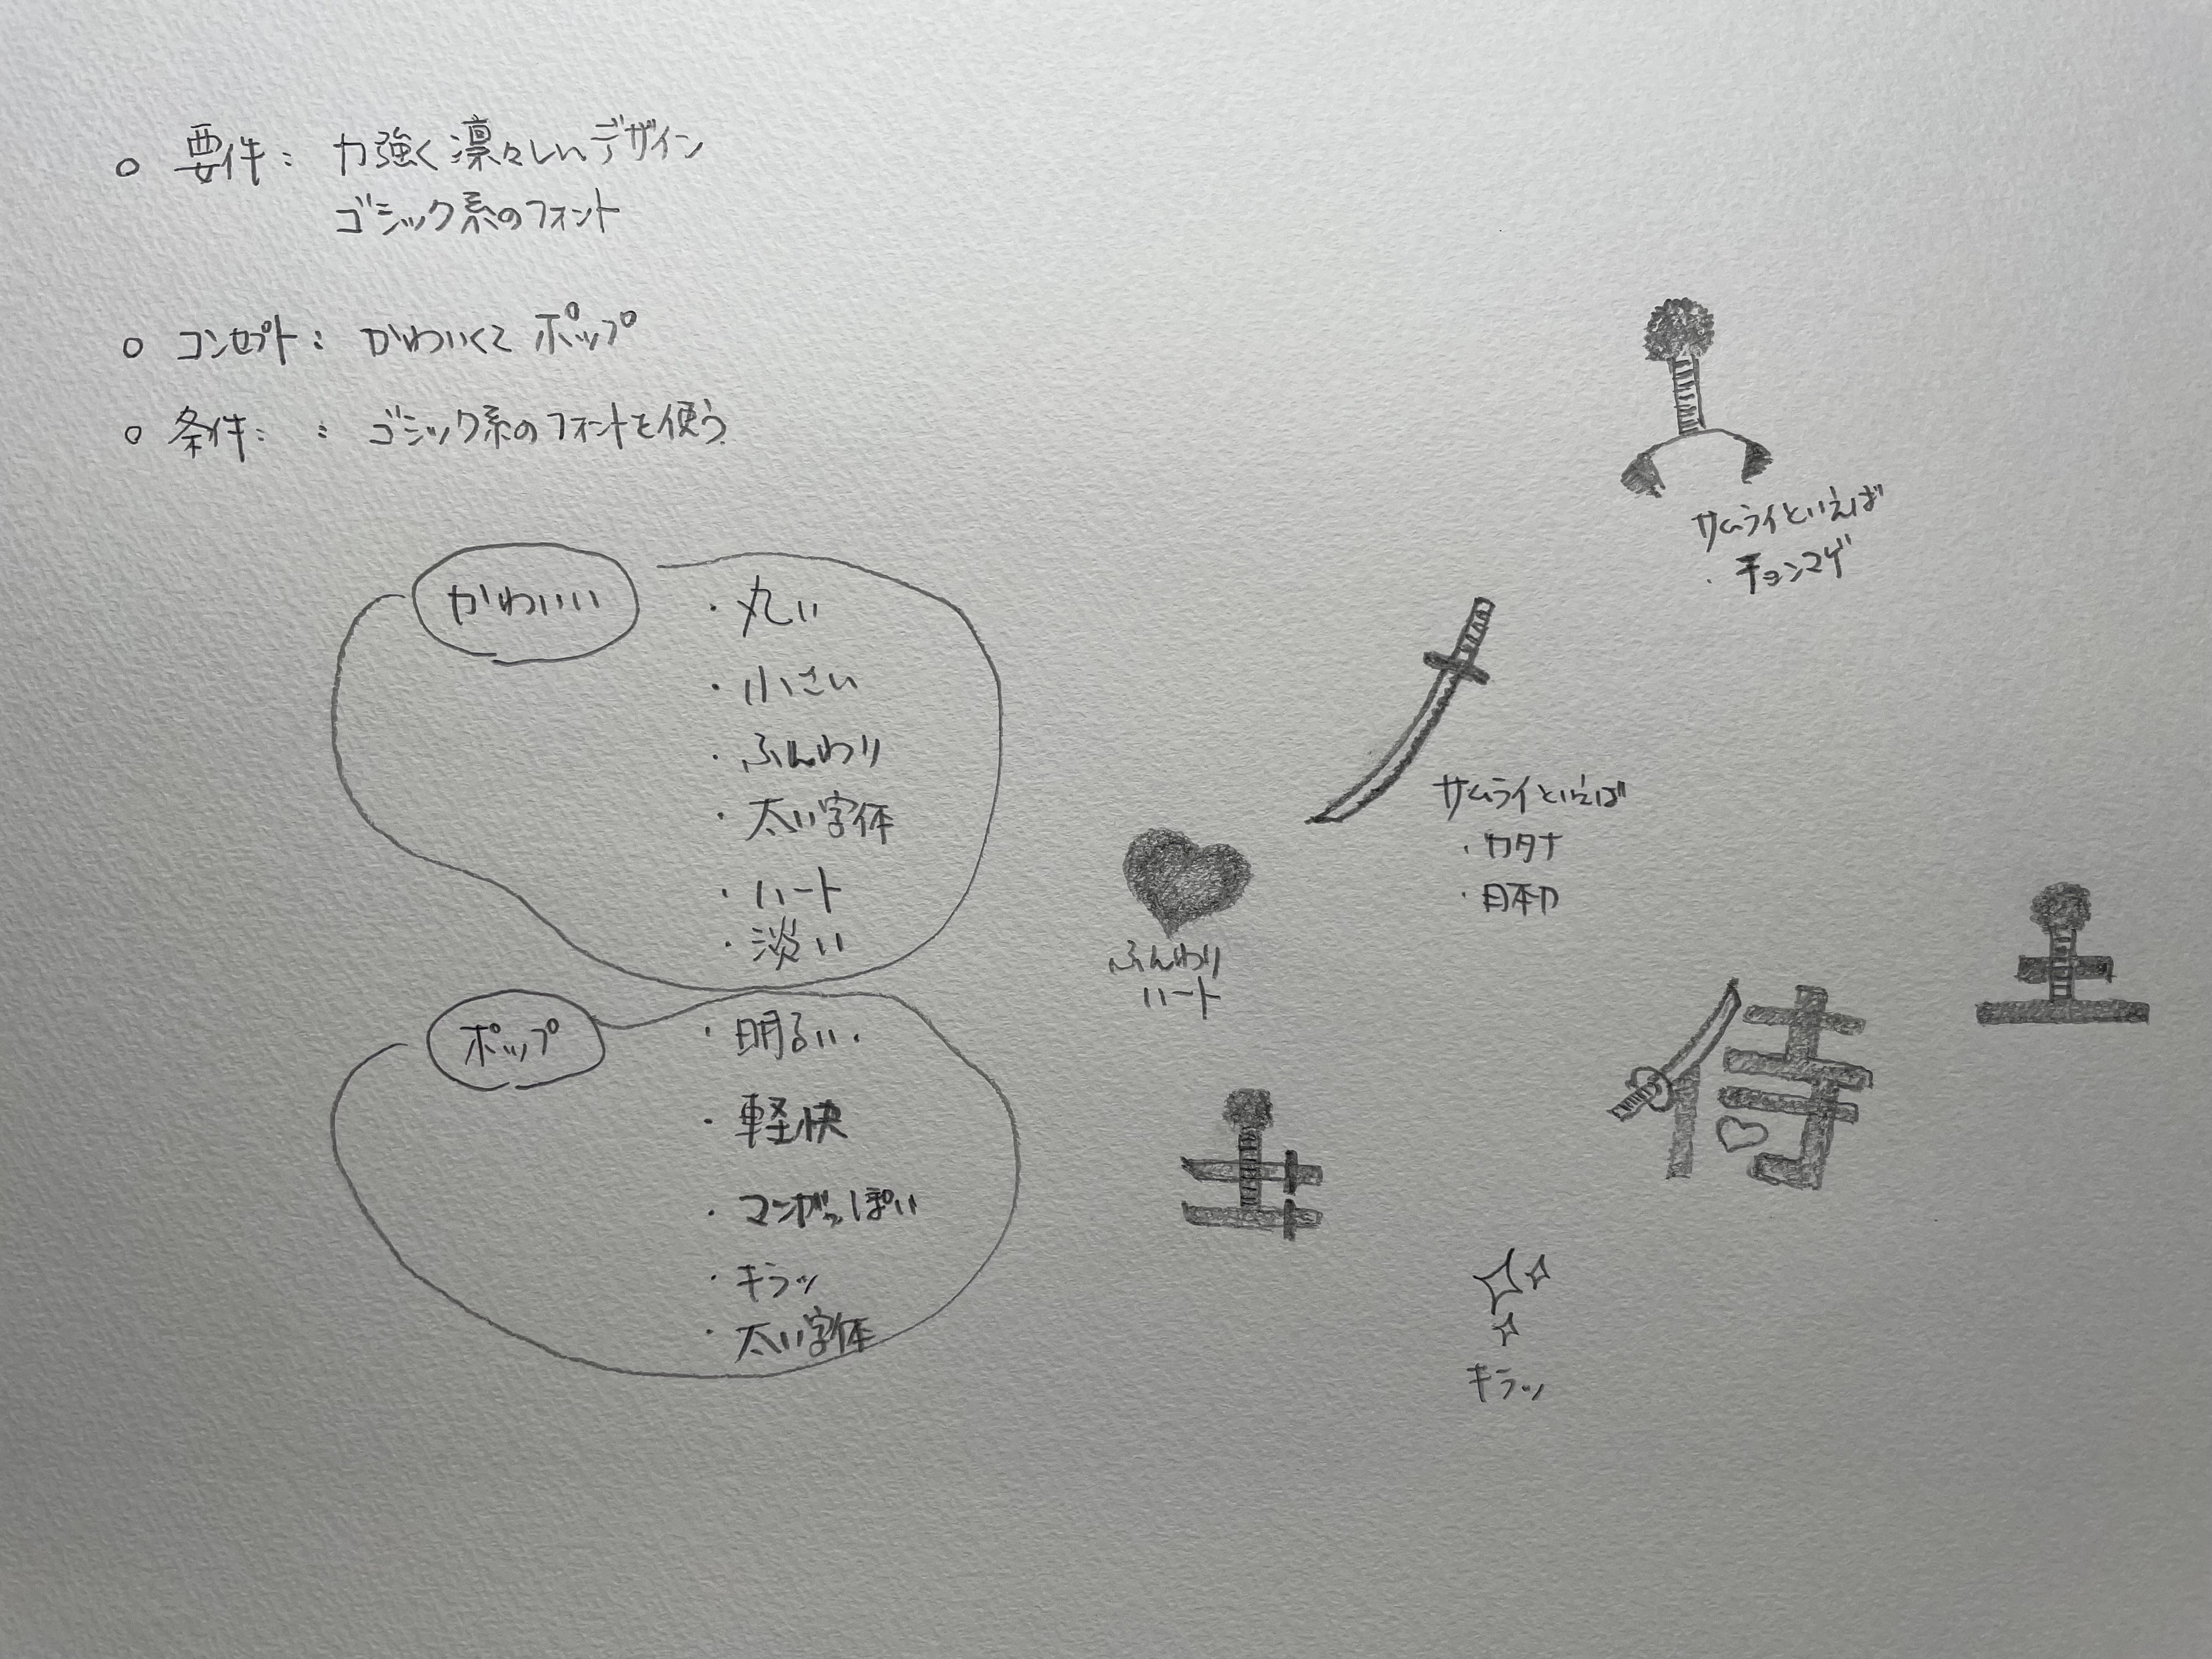 ○ 要件: 力強く凛々しいデザイン
ゴシック系のフォント
○ コンセプト: かわいくて ポップ
○ 条件: : ゴシック系のフォントを使う
かわいい
・丸い
・小さい
・ふんわり
・太い字体
・ハート
・淡い
ポップ
・明るい.
・軽快
・マンガっぽい
・キラッ
・太い字体
サムライといえば
・チョンマゲ
サムライといえば
・カタナ
・日本刀
ふんわり
ハート
侍
士
士
キラッ